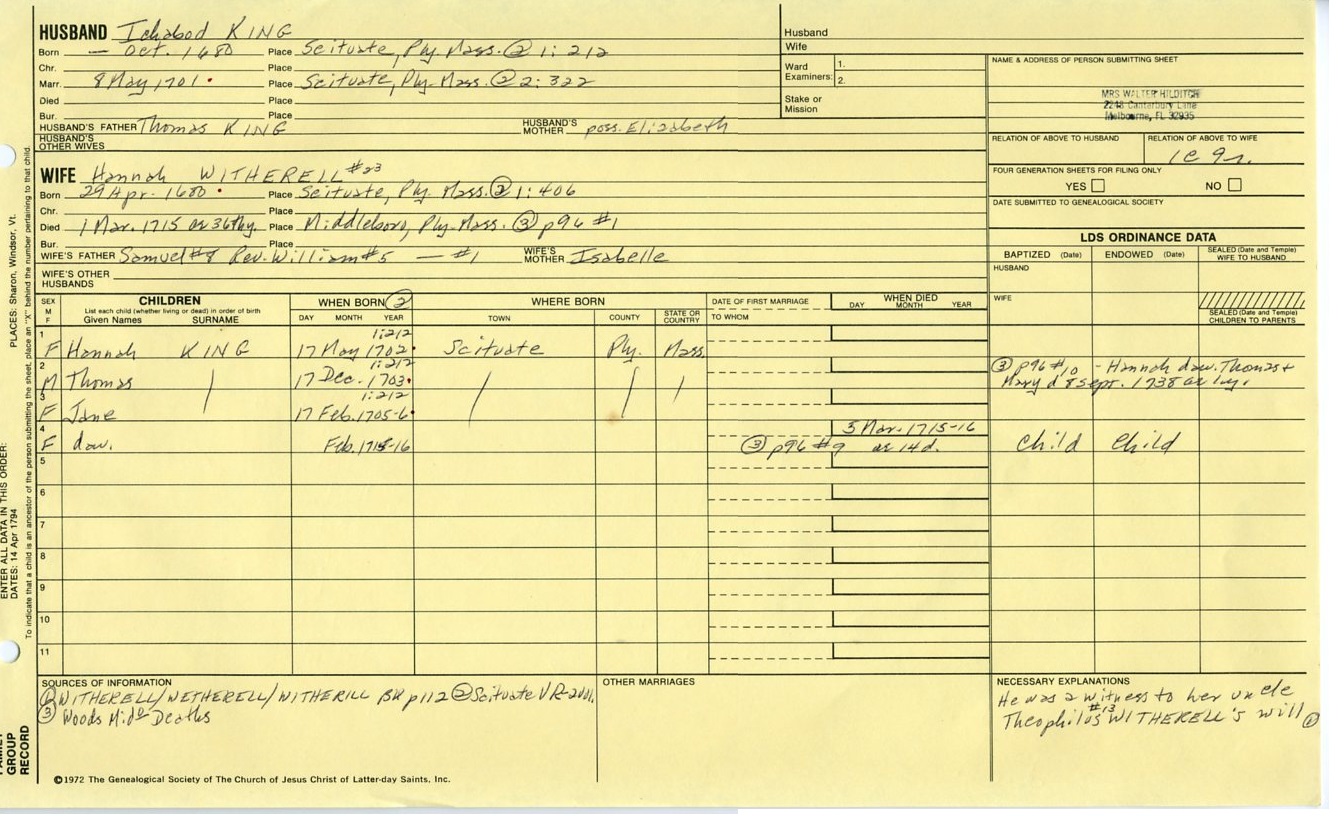 HUSBAND Ichabod KING
Born — Oct. 1680 Place Scituate, Ply. Mass. ② 1: 212
Chr. Place
Marr. 8 May 1701 Place Scituate, Ply. Mass. ② 2: 322
Died Place
Bur. Place
HUSBAND'S FATHER Thomas KING HUSBAND'S MOTHER poss. Elizabeth
HUSBAND'S OTHER WIVES
WIFE Hannah WITHERELL #23
Born 29 Apr. 1680 Place Scituate, Ply. Mass. ② 1: 406
Chr. Place
Died 1 Mar. 1715 ae 36thy. Place Middleboro, Ply. Mass. ③ p96 #1
Bur. Place
WIFE'S FATHER Samuel #8 Rev. William #5 — #1 WIFE'S MOTHER Isabelle
WIFE'S OTHER HUSBANDS
Husband
Wife
Ward Examiners: 1.
2.
Stake or Mission
NAME & ADDRESS OF PERSON SUBMITTING SHEET
MRS WALTER HILDITCH
2248 Canterbury Lane
Melbourne, FL 32935
RELATION OF ABOVE TO HUSBAND RELATION OF ABOVE TO WIFE
1c 9r.
FOUR GENERATION SHEETS FOR FILING ONLY
YES NO
DATE SUBMITTED TO GENEALOGICAL SOCIETY
LDS ORDINANCE DATA
BAPTIZED (Date) ENDOWED (Date) SEALED (Date and Temple) WIFE TO HUSBAND
HUSBAND
WIFE
SEALED (Date and Temple) CHILDREN TO PARENTS
SEX M F CHILDREN WHEN BORN ② WHERE BORN DATE OF FIRST MARRIAGE WHEN DIED
List each child (whether living or dead) in order of birth
Given Names SURNAME DAY MONTH YEAR TOWN COUNTY STATE OR COUNTRY TO WHOM DAY MONTH YEAR
1 1:212
F Hannah KING 17 May 1702 Scituate Ply. Mass.
2 1:212
M Thomas 17 Dec. 1703
③ p96 #10 - Hannah daw. Thomas +
Mary d 8 Sept. 1738 ae 1 y.
3 1:212
F Jane 17 Feb. 1705-6
4 3 Mar. 1715-16
F daw. Feb. 1715-16 ③ p96 #9 ae 14 d. Child Child
5
6
7
8
9
10
11
SOURCES OF INFORMATION
① WITHERELL/WETHERELL/WITHERILL BK p112 ② Scituate VR-2vol.
③ Woods Mid° Deaths
OTHER MARRIAGES
NECESSARY EXPLANATIONS
He was a witness to her uncle
Theophilus #13 WITHERELL's will ①
©1972 The Genealogical Society of The Church of Jesus Christ of Latter-day Saints, Inc.
ENTER ALL DATA IN THIS ORDER:
DATES: 14 Apr 1794
PLACES: Sharon, Windsor, Vt.
To indicate that a child is an ancestor of the person submitting the sheet, place an "X" behind the number pertaining to that child.
FAMILY GROUP RECORD